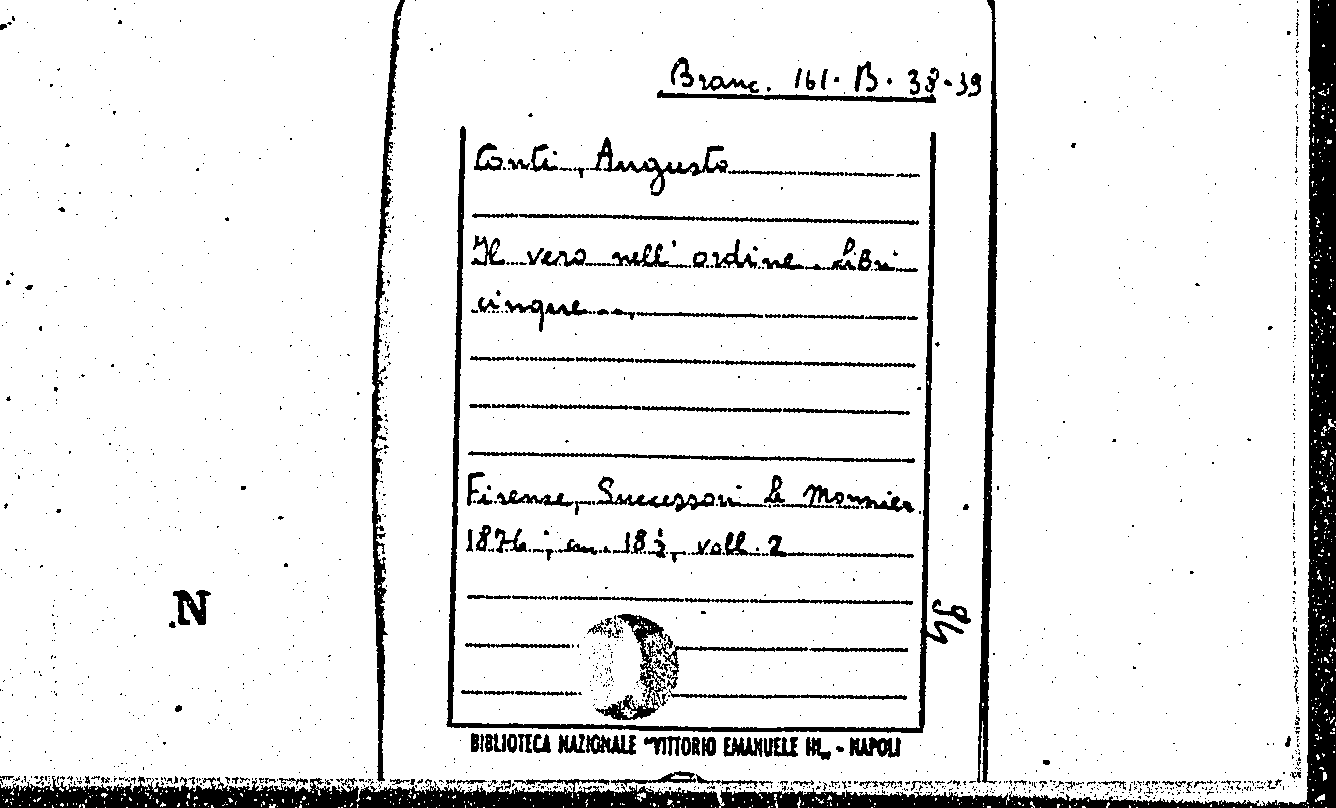 Branc. 161. B. 38-39
Conti, Augusto
Il vero nell' ordine. Libri
cinque...
Firenze, Successori Le Monnier
1876; cm. 18½, voll. 2
94
N
BIBLIOTECA NAZIONALE "VITTORIO EMANUELE III„ - NAPOLI